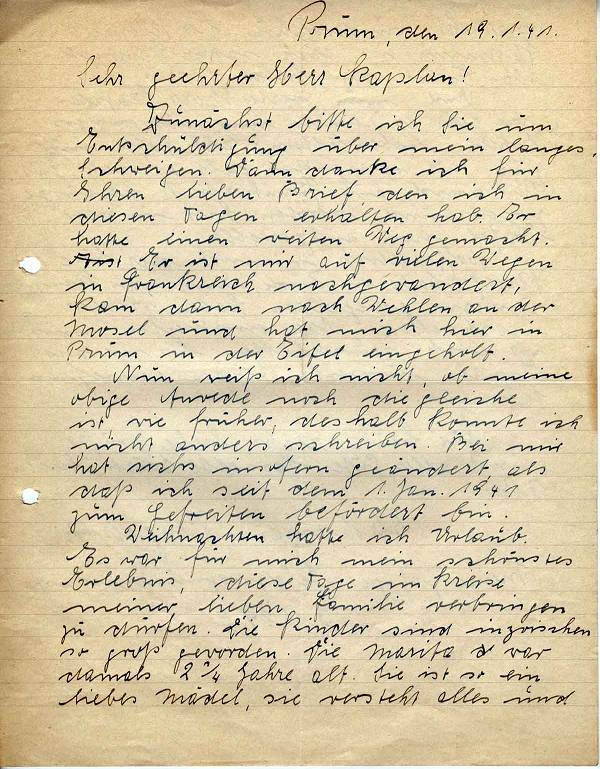 Prüm, den 19.1.41.
Sehr geehrter Herr Kaplan!
Zunächst bitte ich Sie um
Entschuldigung über mein langes
Schweigen. Dann danke ich für
Ihren lieben Brief, den ich in
diesen Tagen erhalten hab. Er
hatte einen weiten Weg gemacht.
Er ist mir auf vielen Wegen
in Frankreich nachgewandert,
kam dann nach Wehlen an der
Mosel und hat mich hier in
Prüm in der Eifel eingeholt.
Nun weiß ich nicht, ob meine
obige Anrede noch die gleiche
ist wie früher, deshalb konnte ich
nicht anders schreiben. Bei mir
hat sichs insofern geändert als
daß ich seit dem 1. Jan. 1941
zum Gefreiten befördert bin.
Weihnachten hatte ich Urlaub.
Es war für mich mein schönstes
Erlebnis, diese Tage im Kreise
meiner lieben Familie verbringen
zu dürfen. Die Kinder sind inzwischen
so groß geworden. Die Marita war
damals 2 3/4 Jahre alt. Sie ist so ein
liebes Mädel, sie versteht alles und